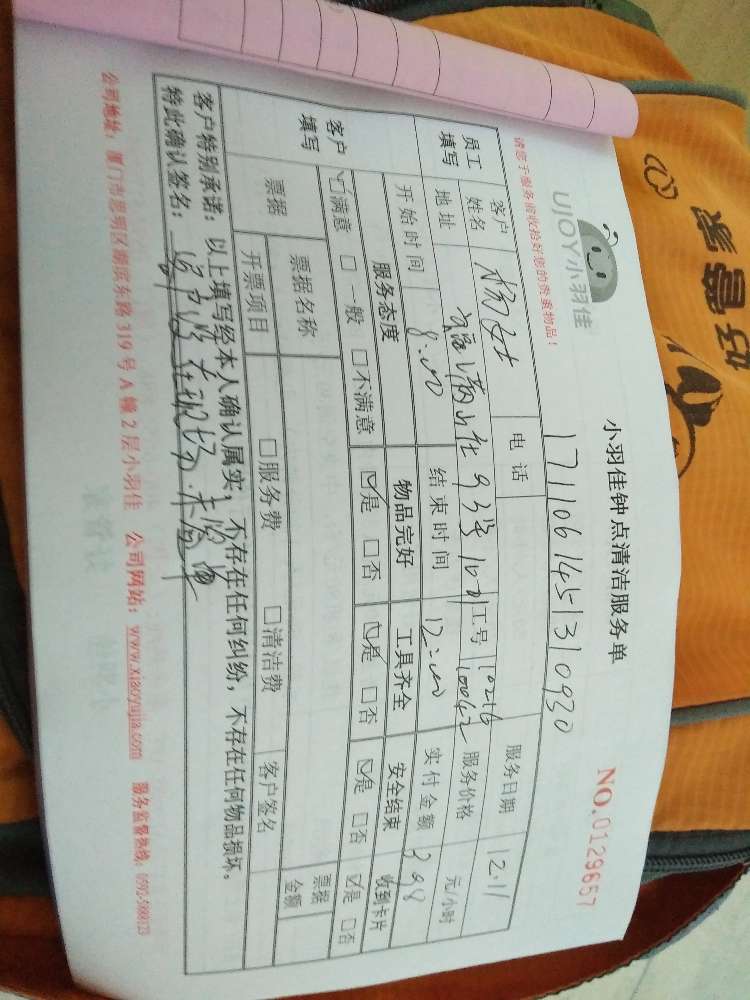 UJOY小羽佳
小羽佳钟点清洁服务单
NO.0129657
请您于服务前收拾好您的贵重物品！
1711061451310930
员工填写
客户姓名 杨女士 电话 服务日期 12.11
地址 93号 工号 10216 10042 服务价格 元/小时
开始时间 8:00 结束时间 12:00 实付金额 298
客户填写
服务态度 物品完好 工具齐全 安全结束 收到卡片
☑满意 □一般 □不满意 ☑是 □否 ☑是 □否 ☑是 □否 ☑是 □否
票据 票据名称 票据金额
开票项目 □服务费 □清洁费 客户签名
客户特别承诺：以上填写经本人确认属实，不存在任何纠纷，不存在任何物品损坏。
特此确认签名：客户没在现场.未签单
公司地址：厦门市思明区湖滨东路319号A幢2层小羽佳 公司网站：www.xiaoyujia.com 服务监督热线：0592-5088123
家
管
好